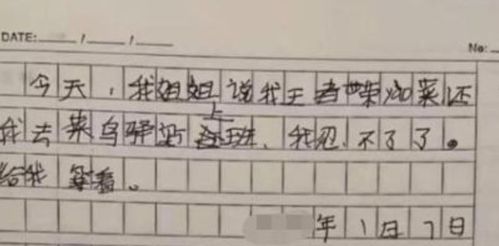 DATE: / /
No:
今天，我姐姐说我王者荣菜还
我去菜鸟驿站上班，我忍不了了。
给我等着。
年1月7日